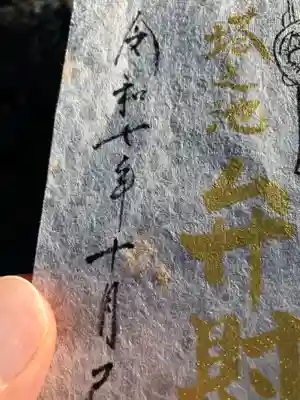 塔之池
弁財
令和七年十月